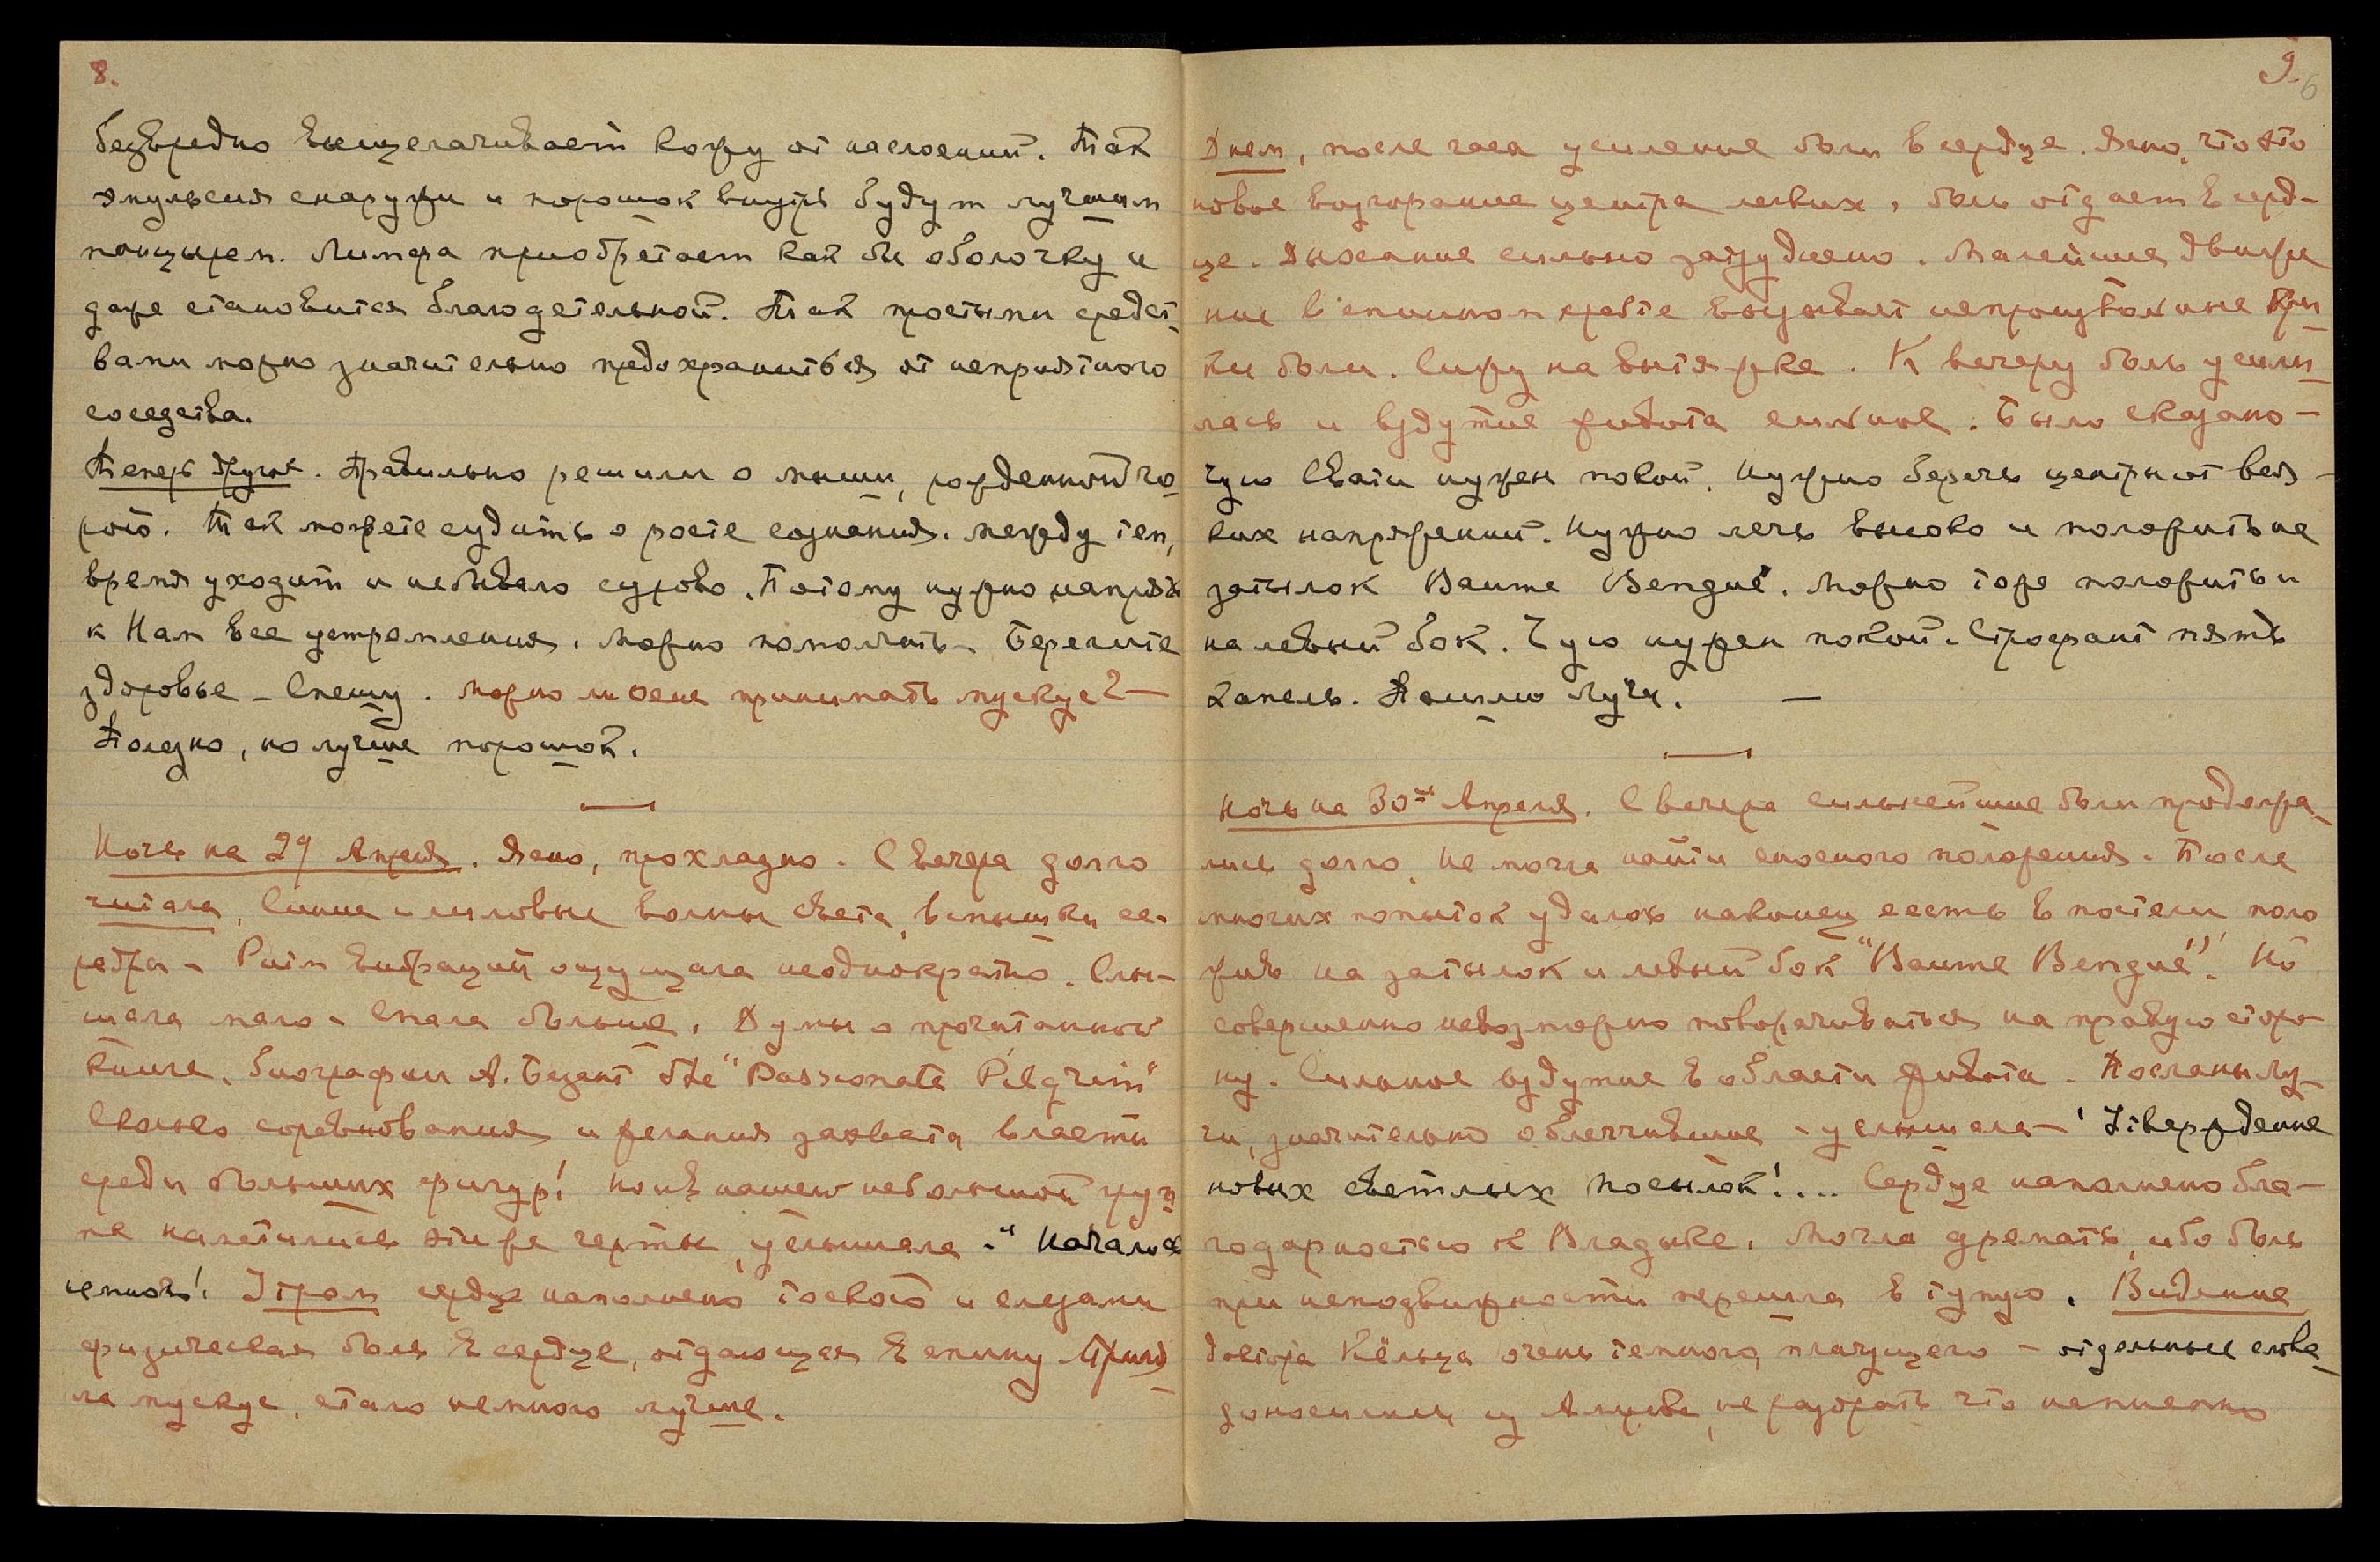 8.
безвредно выщелачивает кожу от наслоений. Так
эмульсия снаружи и порошок внутрь будут лучшим
панцырем. Лимфа приобретает как бы оболочку и
даже становится благодетельной. Так простыми средст-
вами можно значительно предохраниться от неприятного
соседства.
Теперь другое. Правильно решили о мыши, рожденной го-
рою. Так можете судить о росте сознания. между тем,
время уходит и небывало сурово. Потому нужно напрячь
к Нам все устремления. Можно помолчать – Берегите
здоровье – Спешу. Можно ли Оене принимать мускус? –
Полезно, но лучше порошок.
Ночь на 29 Апреля. Ясно, прохладно. С вечера долго
читала, Синие и лиловые волны света, вспышки се-
ребра – Ритм вибраций ощущала неоднократно. Слы-
шала мало – Спала больше. Думы о прочитанной
книге. Биографии А. Безант the "Passionate Pilgrim"
Сколько соревнования и желания захвата власти
среди больших фигур! Но и в нашей небольшой груп
пе наметились эти же черты, услышала – " Началось
с мной! Утром сердце наполнено тоскою и слезами
физическая боль в сердце, отдающая в спину. Приня
ла мускус, стало немного лучше.
9. 6
Днем, после часа усиление боли в сердце. Ясно, что это
новое возгорание центра легких, боль отдает в серд-
це. Дыхание сильно затруднено. Малейшее движе
ние в спинном хребте вызывает непроизвольные кри
ки боли. Сижу на вытяжке. К вечеру боль усили
лась и вздутие живота сильное. Было сказано –
Чую Свати нужен покой. Нужно беречь центры от вся-
ких напряжений. Нужно лечь высоко и положить на
затылок Baume Bengué. Можно тоже положить и
на левый бок. Чую нужен покой. Строфант пять
капель. Пошлю Лучи. –
Ночь на 30ое Апреля. С вечера сильнейшие боли продолжа
лись долго. Не могла найти сносного положения. После
многих попыток удалось наконец сесть в постели, поло
жив на затылок и левый бок "Baume Bengué". Но
совершенно невозможно поворачиваться на правую сторо
ну. Сильное вздутие в области живота. Посланы Лу-
чи, значительно облегчившие – услышала – ' Утверждение
новых светлых посылок!.... Сердце наполнено бла-
годарностью к Владыке. Могла дремать, ибо боль
при неподвижности перешла в тупую. Видение
доктора Кёльца очень темного, плачущего – отдельные слова
доносились из Америки, не разобрать что именно